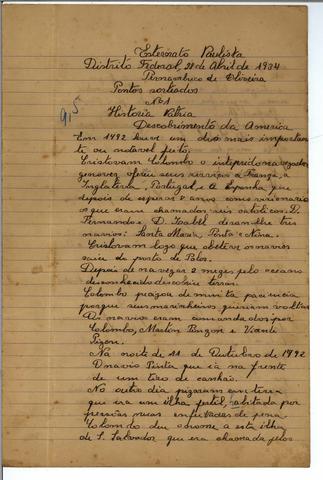 Externato Paulista
Distrito Federal, 28 de Abril de 1934
Pernambuco de Oliveira
Pontos sorteados
Nº 1
9,5
Historia Patria
Descobrimento da America
Em 1492 houve um dos mais important
te ou notavel feito;
Cristovam Colombo o inteprido navegador
genovez ofereu seus serviços a França, a
Inglaterra, Portugal, e a Espanha que
depois de esperar 2 anos como visionario
os que eram chamados reis catolicos D.
Fernando e D. Izabel deram lhe tres
navios: Santa Maria, Pinta e Nina.
Cristovam logo que obteve os navios
saiu do porto de Palos.
Depois de navegar 2 mezes pelo oceano
desconhecido descobriu terras.
Colombo precizou de muita paciencia
porque seus marinheiros queriam voltar.
Os navios eram comandados por
Colombo, Martin Pinzon e Vicente
Pizon.
Na noite de 11 de Outubro de 1492
O navio Pinta que ia na frente
deu um tiro de canhão.
No outro dia pizaram em terra
que era um ilha fertil, habitada por
pessôas nuas enfeitadas de pena.
Colombo deu o nome a esta ilha
de S. Salvador que era chamada pelos